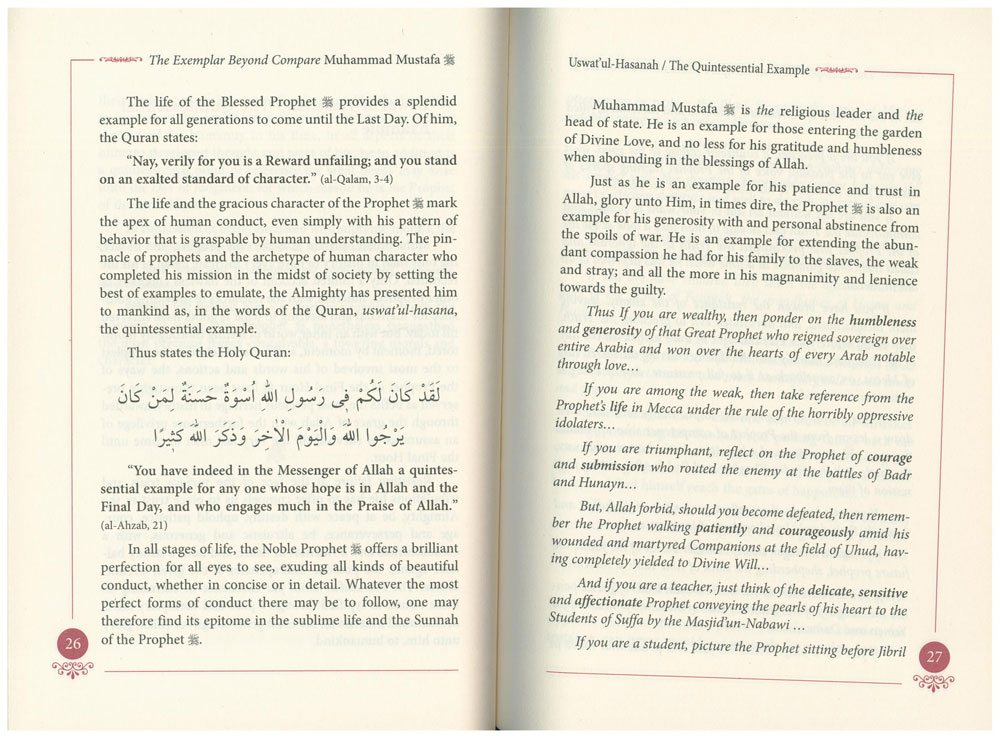 The Exemplar Beyond Compare Muhammad Mustafa ﷺ
The life of the Blessed Prophet ﷺ provides a splendid
example for all generations to come until the Last Day. Of him,
the Quran states:
“Nay, verily for you is a Reward unfailing; and you stand
on an exalted standard of character.” (al-Qalam, 3-4)
The life and the gracious character of the Prophet ﷺ mark
the apex of human conduct, even simply with his pattern of
behavior that is graspable by human understanding. The pin-
nacle of prophets and the archetype of human character who
completed his mission in the midst of society by setting the
best of examples to emulate, the Almighty has presented him
to mankind as, in the words of the Quran, uswat’ul-hasana,
the quintessential example.
Thus states the Holy Quran:
لَقَدْ كَانَ لَكُمْ فِى رَسُولِ اللّٰهِ اُسْوَةٌ حَسَنَةٌ لِمَنْ كَانَ
يَرْجُوا اللّٰهَ وَالْيَوْمَ الْاٰخِرَ وَذَكَرَ اللّٰهَ كَثِيرًا
“You have indeed in the Messenger of Allah a quintes-
sential example for any one whose hope is in Allah and the
Final Day, and who engages much in the Praise of Allah.”
(al-Ahzab, 21)
In all stages of life, the Noble Prophet ﷺ offers a brilliant
perfection for all eyes to see, exuding all kinds of beautiful
conduct, whether in concise or in detail. Whatever the most
perfect forms of conduct there may be to follow, one may
therefore find its epitome in the sublime life and the Sunnah
of the Prophet ﷺ.
26
Uswat’ul-Hasanah / The Quintessential Example
Muhammad Mustafa ﷺ is the religious leader and the
head of state. He is an example for those entering the garden
of Divine Love, and no less for his gratitude and humbleness
when abounding in the blessings of Allah.
Just as he is an example for his patience and trust in
Allah, glory unto Him, in times dire, the Prophet ﷺ is also an
example for his generosity with and personal abstinence from
the spoils of war. He is an example for extending the abun-
dant compassion he had for his family to the slaves, the weak
and stray; and all the more in his magnanimity and lenience
towards the guilty.
Thus If you are wealthy, then ponder on the humbleness
and generosity of that Great Prophet who reigned sovereign over
entire Arabia and won over the hearts of every Arab notable
through love…
If you are among the weak, then take reference from the
Prophet’s life in Mecca under the rule of the horribly oppressive
idolaters…
If you are triumphant, reflect on the Prophet of courage
and submission who routed the enemy at the battles of Badr
and Hunayn…
But, Allah forbid, should you become defeated, then remem-
ber the Prophet walking patiently and courageously amid his
wounded and martyred Companions at the field of Uhud, hav-
ing completely yielded to Divine Will…
And if you are a teacher, just think of the delicate, sensitive
and affectionate Prophet conveying the pearls of his heart to the
Students of Suffa by the Masjid’un-Nabawi …
If you are a student, picture the Prophet sitting before Jibril
27